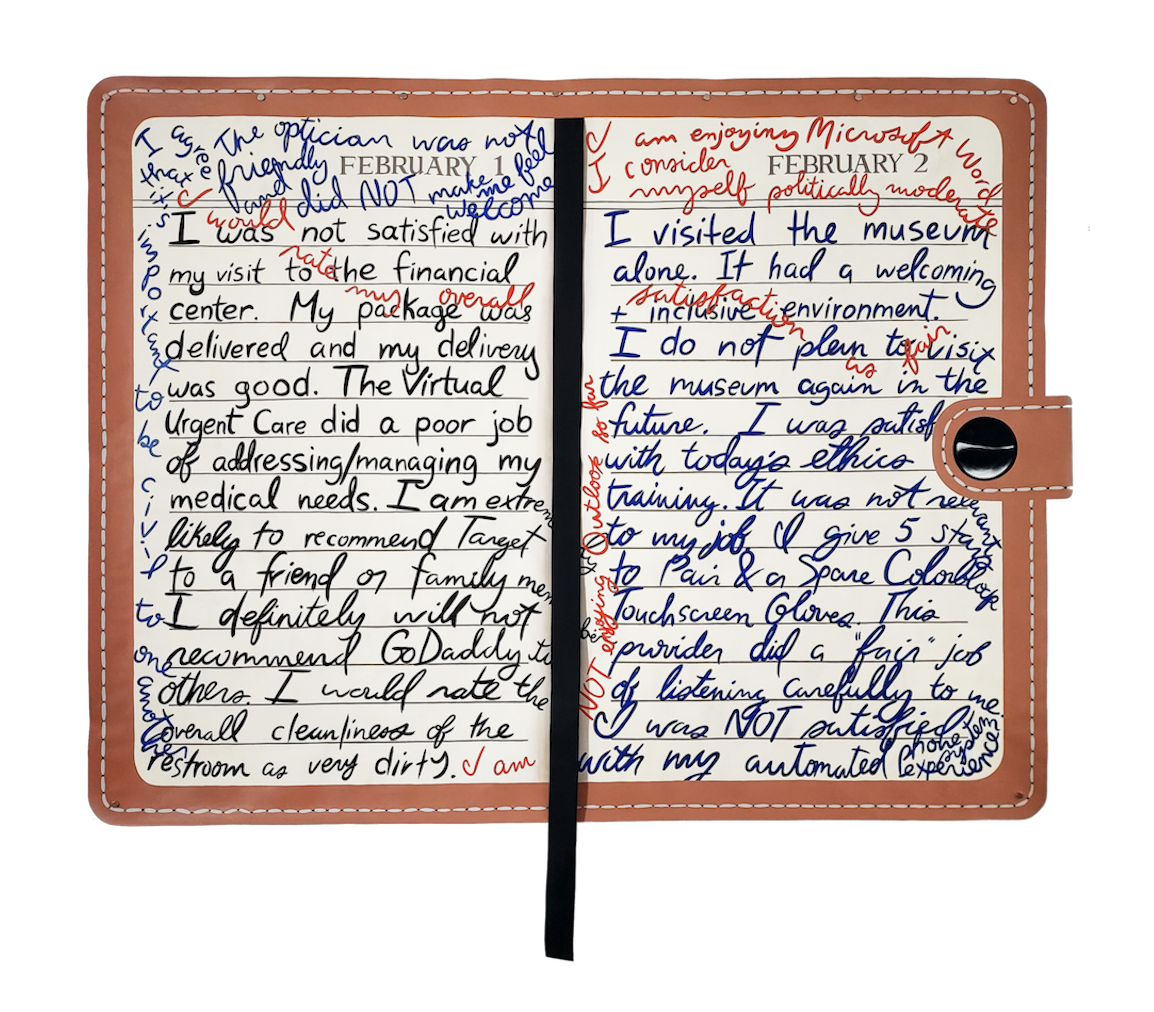 The optician was not
friendly
and did NOT make me feel
welcome
FEBRUARY 1
I agree
that it's
important
to
be
civil
to
one
another
I would
rate
my overall
satisfaction
as fair
I was not satisfied with
my visit to the financial
center. My package was
delivered and my delivery
was good. The Virtual
Urgent Care did a poor job
of addressing/managing my
medical needs. I am extrem
likely to recommend Target
to a friend or family mem
I definitely will not
recommend GoDaddy to
others. I would rate the
overall cleanliness of the
restroom as very dirty. I am
NOT enjoying Outlook so far
I am enjoying Microsoft Word
I consider
myself politically moderate
FEBRUARY 2
I visited the museum
alone. It had a welcoming
+ inclusive environment.
I do not plan to visit
the museum again in the
future. I was satisf
with today's ethics
training. It was not relevant
to my job. I give 5 stars
to Pair & a Spare Colorblock
Touchscreen Gloves. This
provider did a "fair" job
of listening carefully to me.
I was NOT satisfied
with my automated phone system
experience.